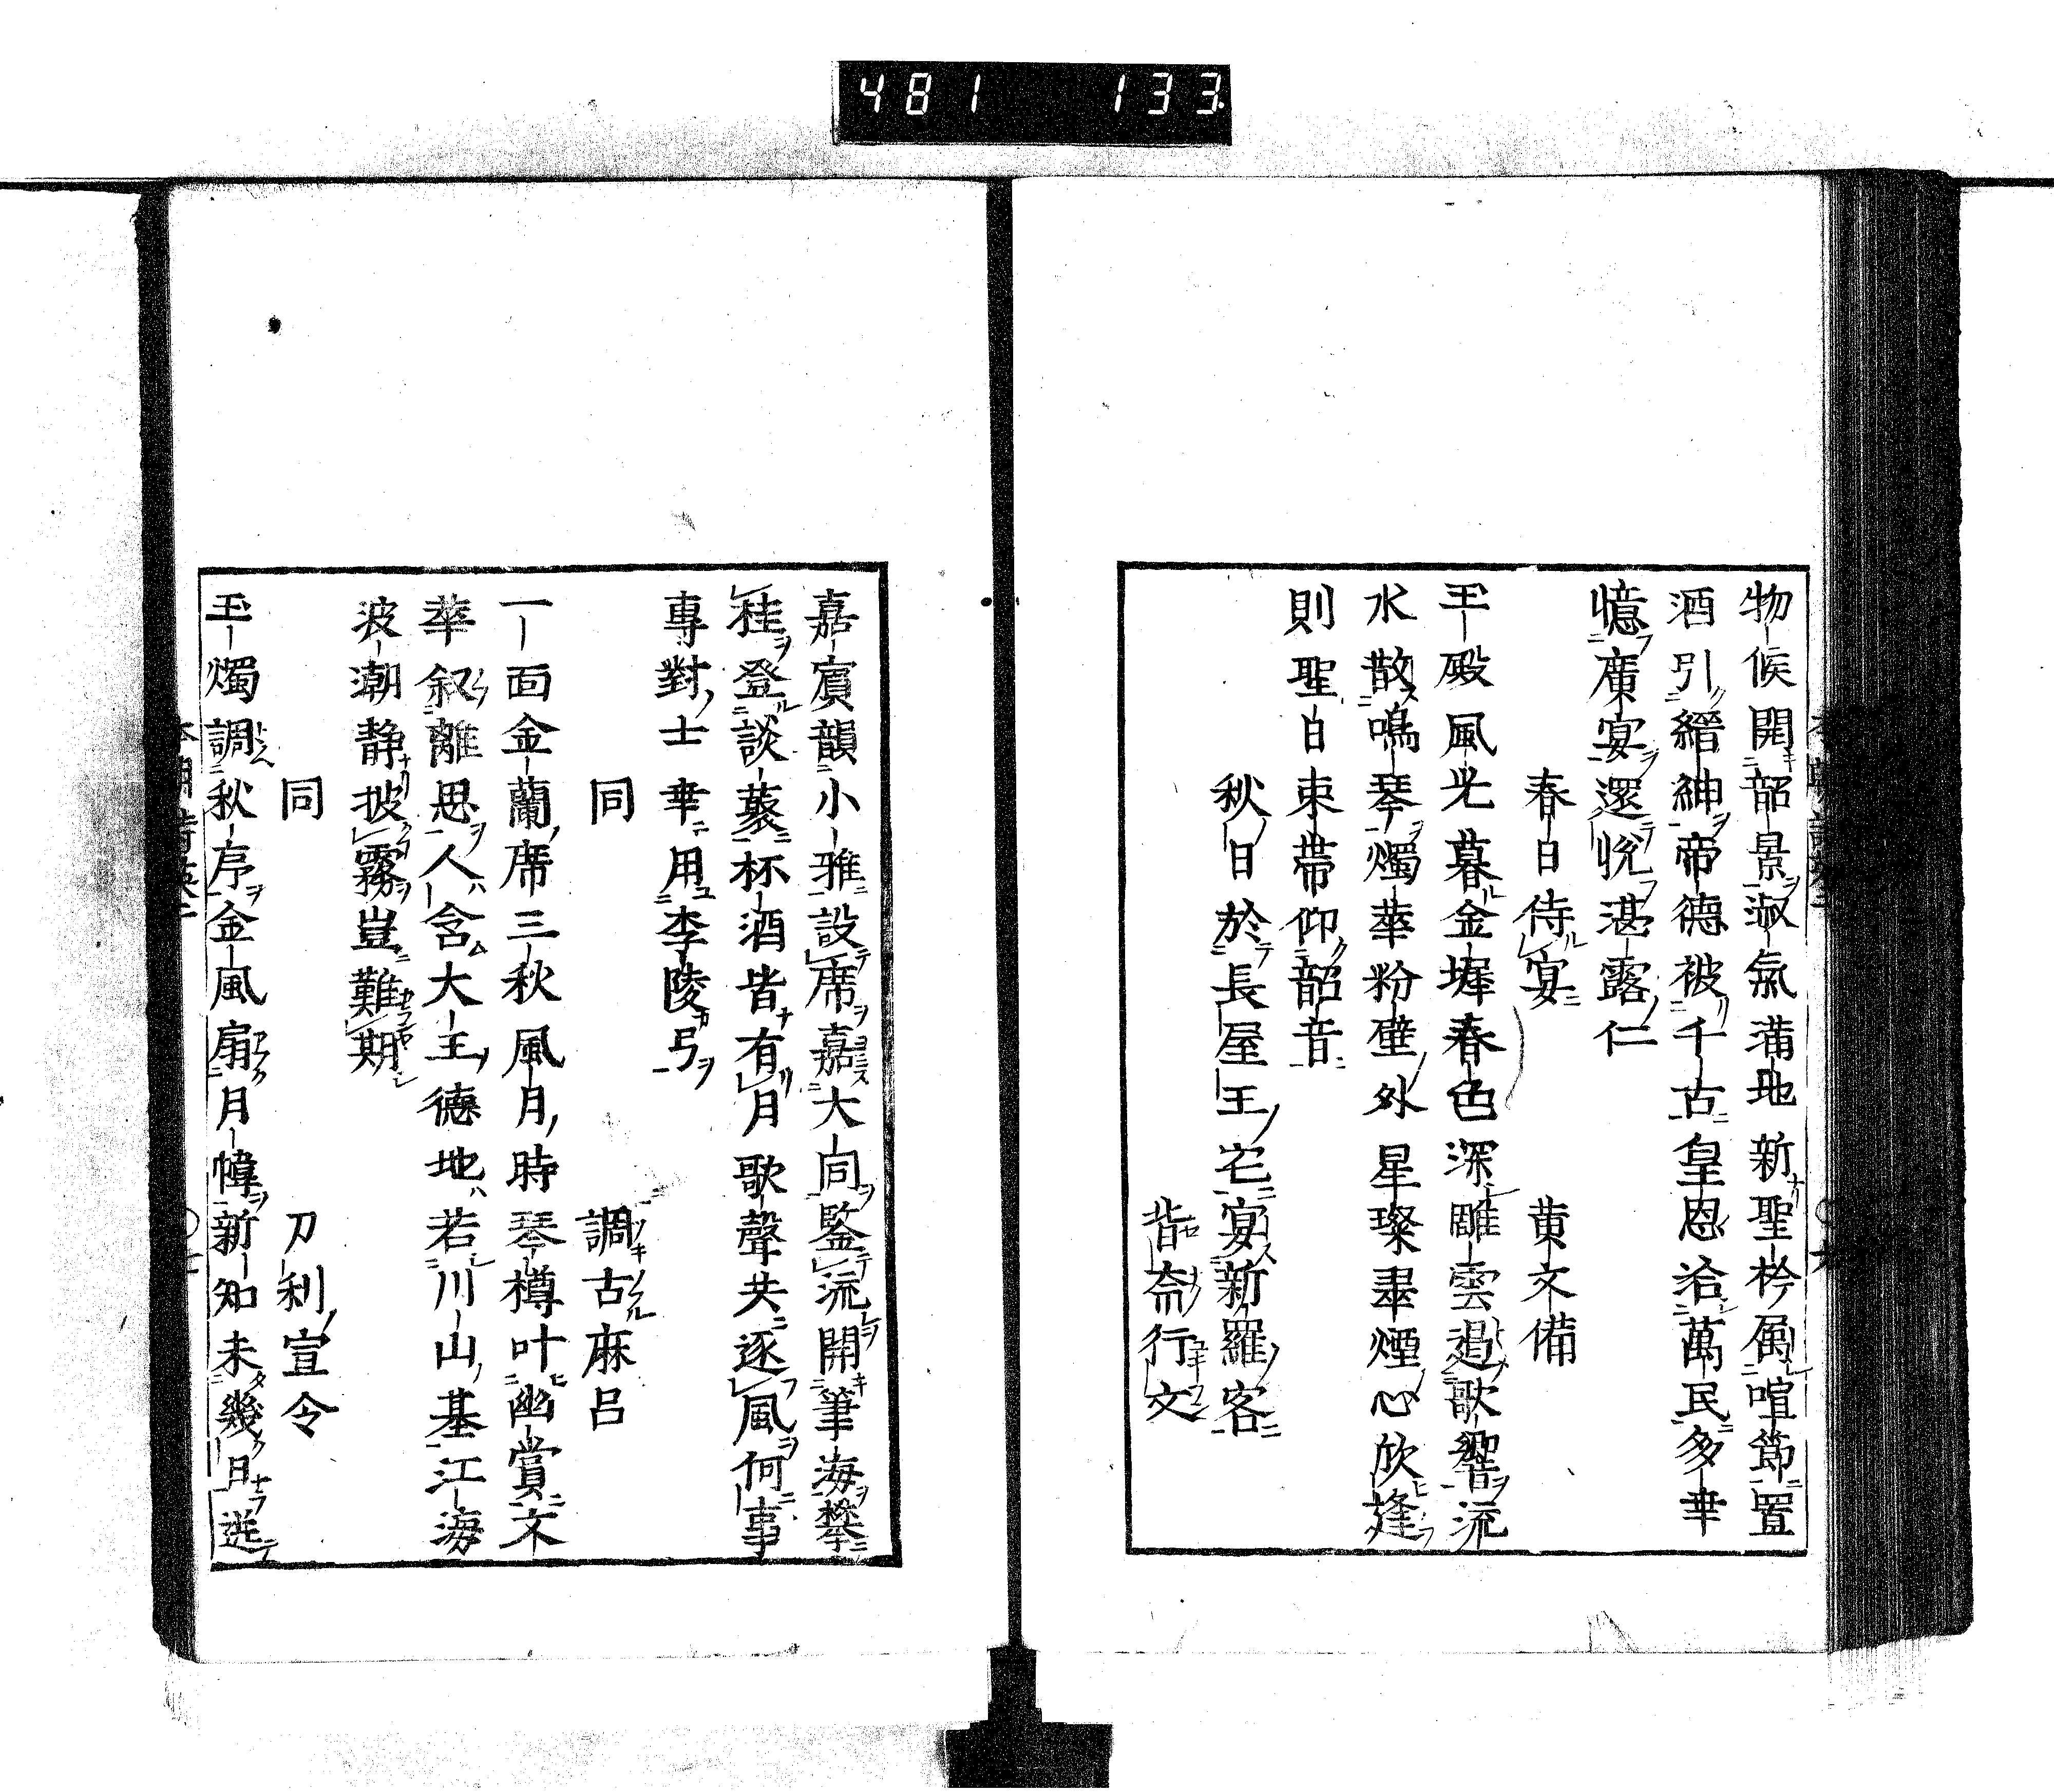 481 133
物候開韶景淑氣滿地新聖衿属暄節置
酒引縉紳帝德被千古皇恩洽萬民多幸
憶廣宴還悅湛露仁
春日侍宴 黄文備
玉殿風光暮金墀春色深雕雲遏歌響流
水散鳴琴燭華粉壁外星璨翠煙心欣逢
則聖日束帶仰韶音
秋日於長屋王宅宴新羅客
背奈行文
嘉賓韻小雅設席嘉大同鑒流開筆海攀
桂登談叢杯酒皆有月歌聲共逐風何事
專對士幸用李陵弓
同 調古麻呂
一面金蘭席三秋風月時琴樽叶幽賞文
華叙離思人含大王德地若小山基江海
波潮静披霧豈難期
同 刀利宣令
玉燭調秋序金風扇月幃新知未幾日送